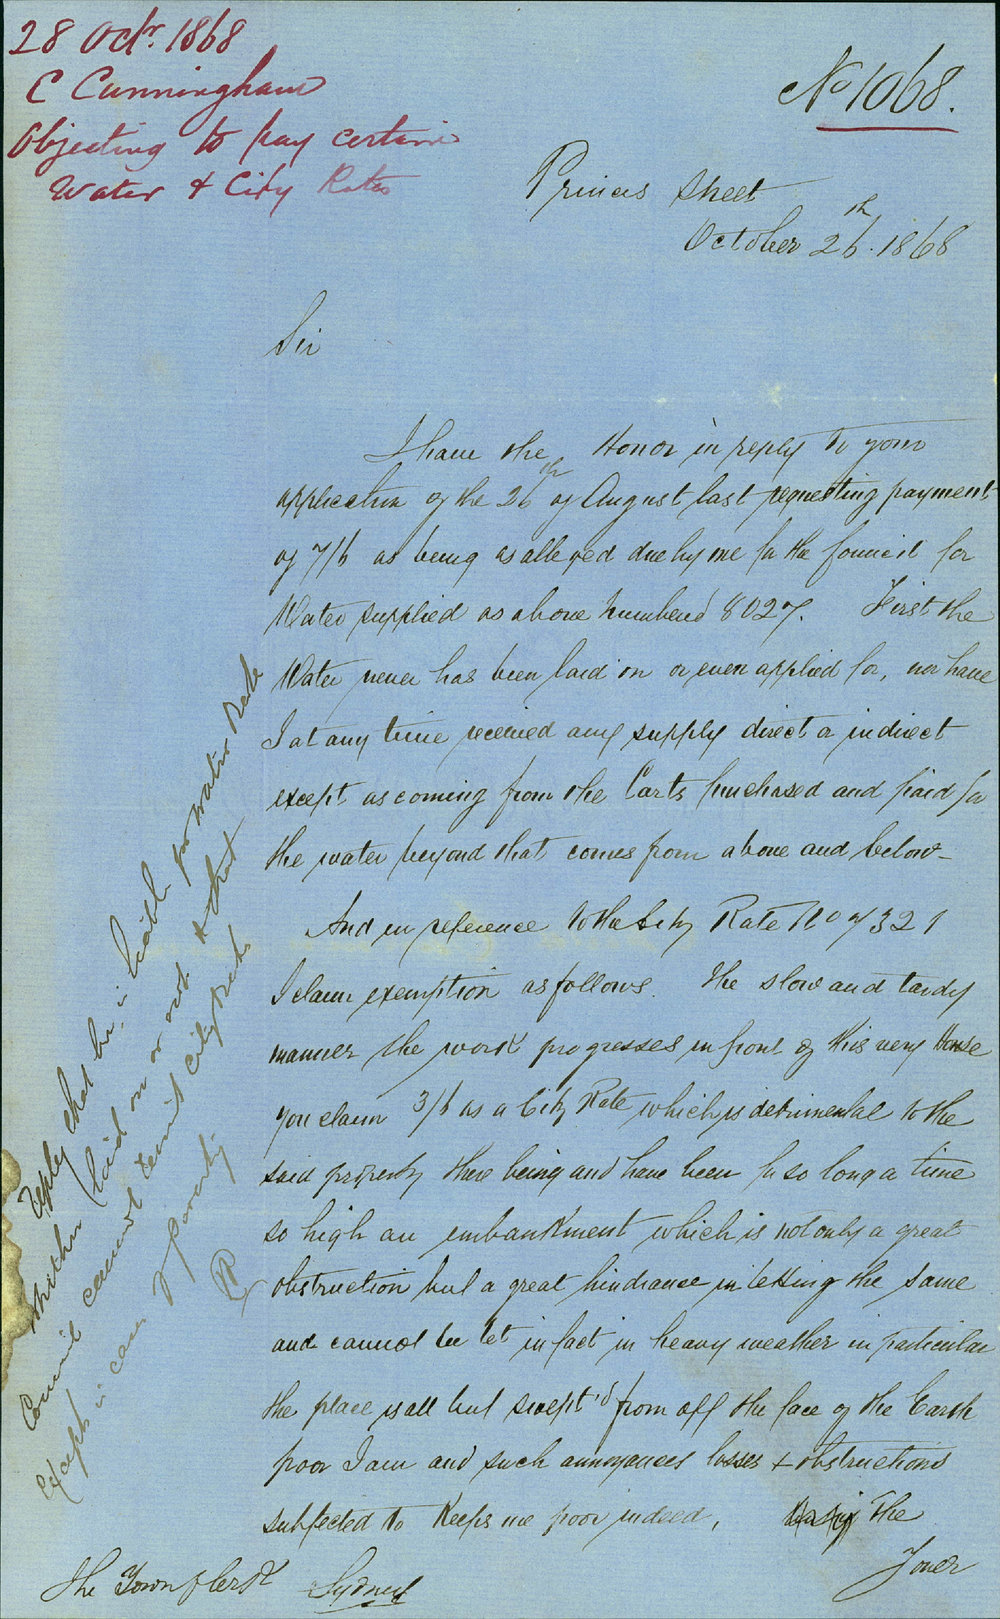 28 Octr. 1868
C Cunningham
Objecting to pay certain
Water & City Rates
No 1068.
Princes Street
October 26th. 1868
Sir
I have the Honor in reply to your
application of the 26th of August last requesting payment
of 7/6 as being as alleged due by me to the Council for
Water supplied as above numbered 8027. First the
Water never has been laid on or even applied for, nor have
I at any time received any supply direct or indirect
except as coming from the Carts purchased and paid for
the water beyond that comes from above and below -
And in reference to the City Rate No 7321
I claim exemption as follows. The slow and tardy
manner the work progresses in front of this very House
you claim 3/6 as a City Rate which is detrimental to the
said property there being and have been for so long a time
so high an embankment which is not only a great
obstruction but a great hindrance in letting the same
and cannot be let in fact in heavy weather in particular
the place is all but swept'd from off the face of the Earth
poor I am and such annoyances losses & obstructions
subjected to Keeps me poor indeed, the
Town Clerk
The Town Clerk Sydney
Reply that he is liable for Water Rate
whether laid on or not & that
Council cannot remit City Rates
except in case of poverty